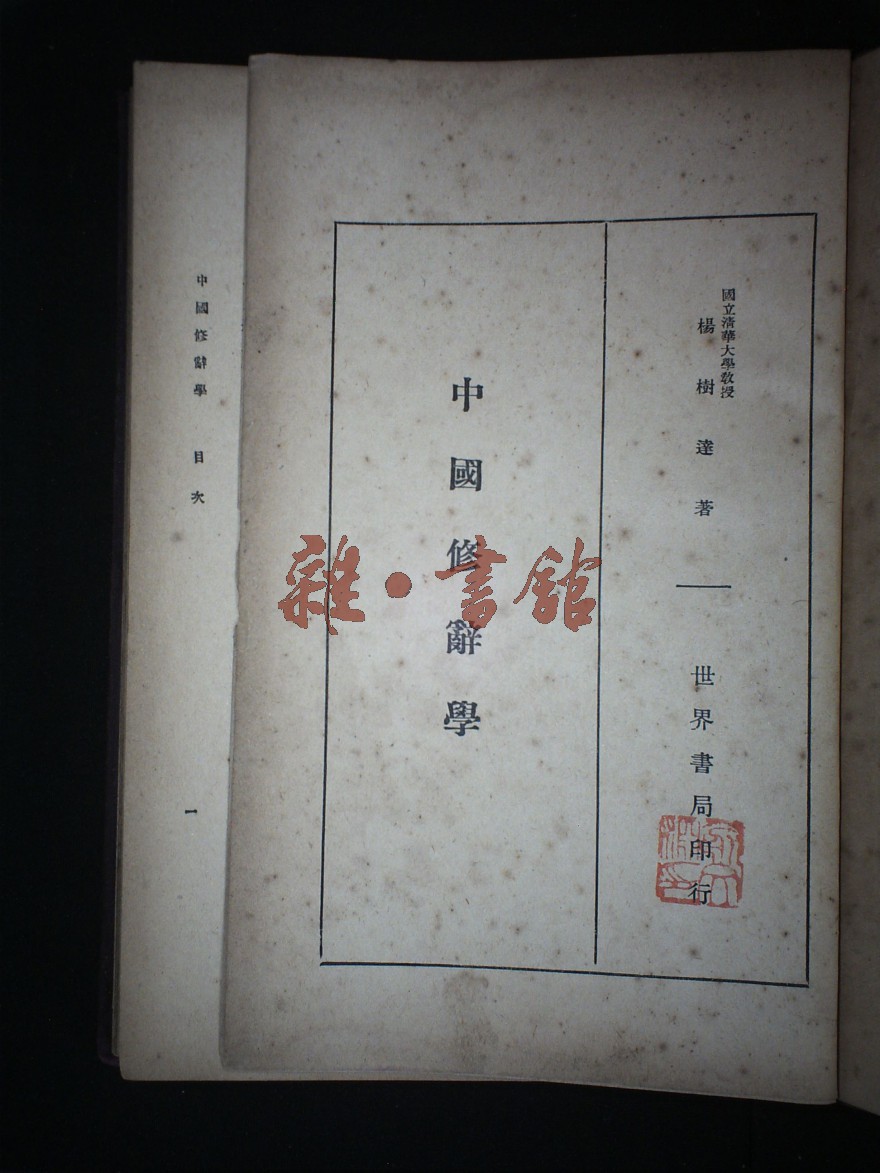 國立清華大學教授
楊樹達著 — 世界書局印行
中國修辭學
中國修辭學 目次
一
雜·書館